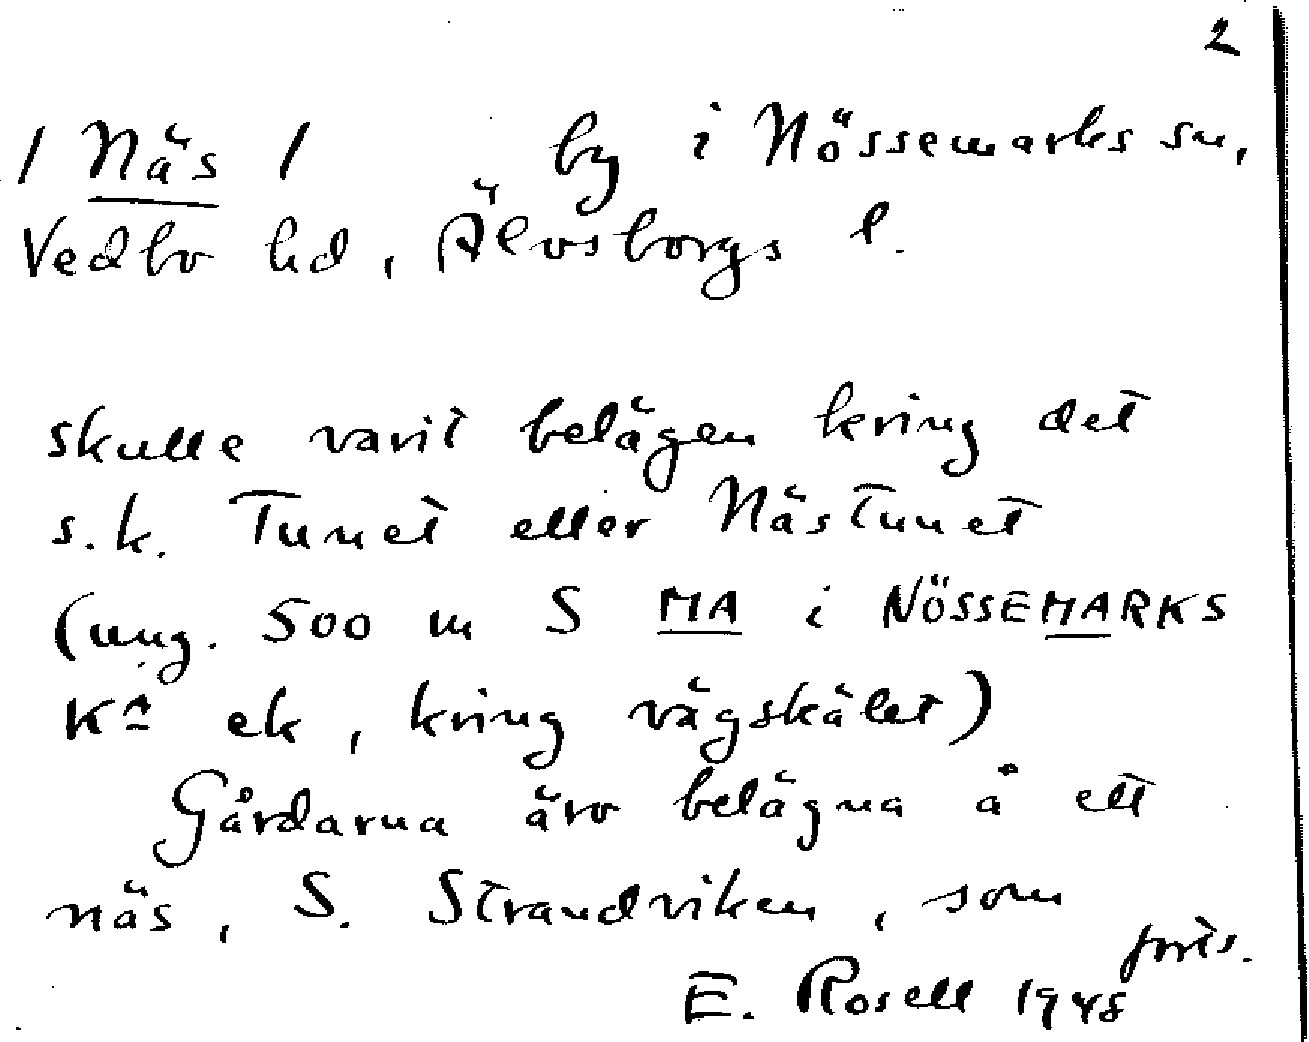 2
/ Näs / by i Nössemarks sn,
Vedbo hd, Älvsborgs l.
skulle varit belägen kring det
s.k. Tunet eller Nästunet
(ung. 500 m S MA i NÖSSEMARKS
KA ek, kring vägskälet)
Gårdarna äro belägna å ett
näs, S. Strandviken, som
forts.
E. Rosell 1948